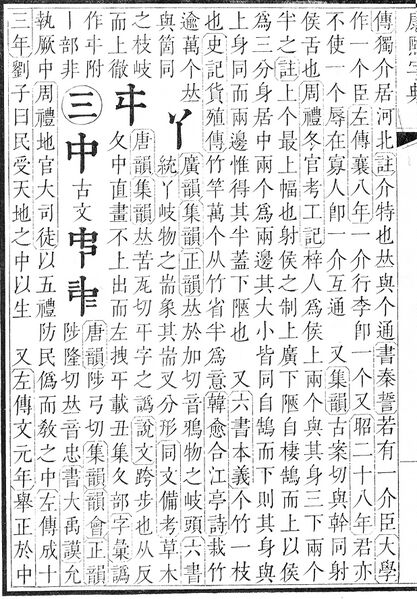 康熙字典
傳獨介居河北註介特也𠀤與个通書秦誓若有一介臣大學
作一个臣左傳襄八年一介行李卽一个又昭二十八年君亦
不使一个辱在寡人卽一介互通 又集韻古案切與幹同射
侯舌也周禮冬官考工記梓人爲侯上兩个與其身三下兩个
半之註上个最上幅也射侯之制上廣下陿自棲鵠而上以侯
爲三分身居中兩个爲兩邊其大小皆同自鵠而下則其身與
上身同而兩邊惟得其半蓋下陿也 又六書本義个竹一枝
也史記貨殖傳竹竿萬个从竹省半爲意韓愈合江亭詩栽竹
逾萬个𠀤
與箇同
丫
廣韻集韻正韻𠀤於加切音鴉物之岐頭六書
統丫岐物之耑象其耑又分形同文備考草木
之枝岐
而上徹
㐄
唐韻集韻𠀤苦瓦切㐄字之譌說文跨步也从反
夂中直畫不上出而左拽㐄載丑集夂部字彙譌
作㐄附
丨部非
三
中
古文
𠁩
𠁧
唐韻陟弓切集韻韻會正韻
陟隆切𠀤音忠書大禹謨允
執厥中周禮地官大司徒以五禮防民僞而敎之中左傳成十
三年劉子曰民受天地之中以生 又左傳文元年舉正於中